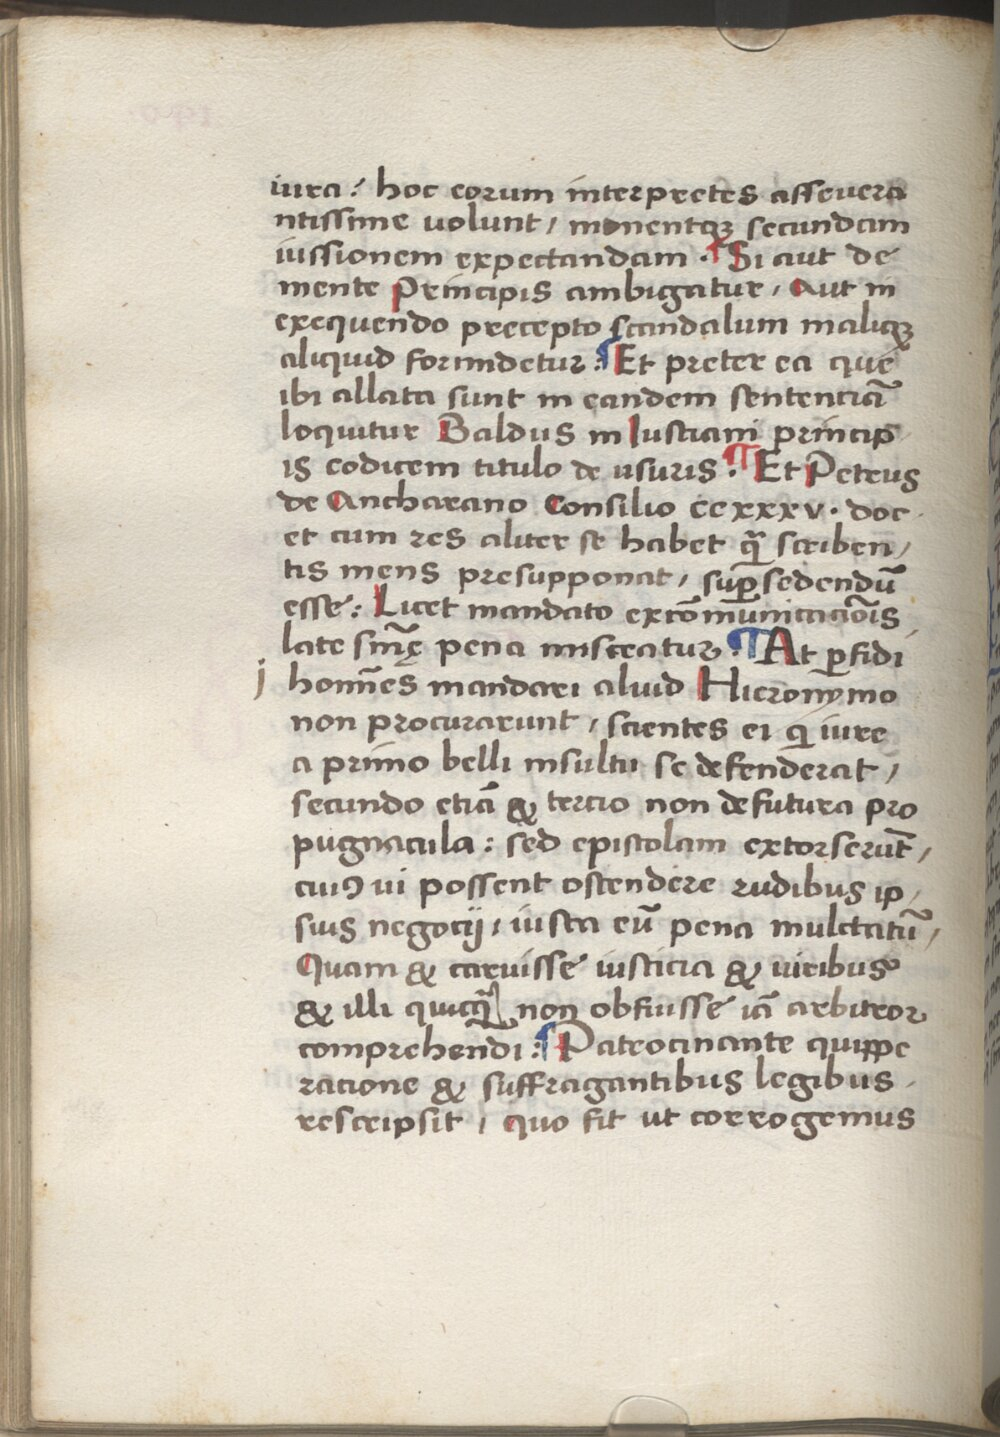 iura: hoc eorum interpretes assevera
ntissime uolunt, monentqꝫ secundam
iussionem expectandam. ¶ Si aut de
mente Principis ambigatur, Aut in
exequendo precepto scandalum maliqꝫ
aliquid formidetur: ¶ Et preter ea que
ibi allata sunt in eandem sententiā
loquitur Baldus in Iustiani princip
is codicem titulo de usuris. ¶ Et Petrus
de Ancharano Consilio ccxxxv. doc
et cum res aliter se habet qͣ̄ scriben,
tis mens presupponat, suꝑsedendū
esse: Licet mandato excōm̄unicaciōis
late sn̄ię pena misceatur. ¶ At ꝑfidi
hoīnes mandari aliud Hieronymo
non procurarunt, scientes ei qͥ iure
a primo belli insultu se defenderat,
secundo etiā & tercio non defutura pro
pugnacula: sed epistolam extorserūt,
cuiꝰ ui possent ostendere rudibus ip,
sius negocij, iusta eū pena mulctatū,
Quam & caruisse iusticia & uiribus
& illi quicqͣ̄ non obfuisse iā arbitror
comprehendi: ¶ Patrocinante quippe
racione & suffragantibus legibus
rescripsit, quo fit ut corrogemus